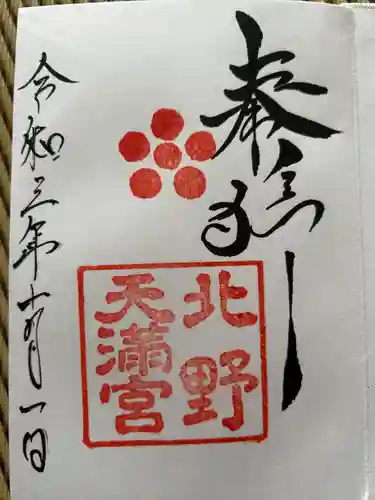 奉拝
北野
天満宮
令和三年十月一日